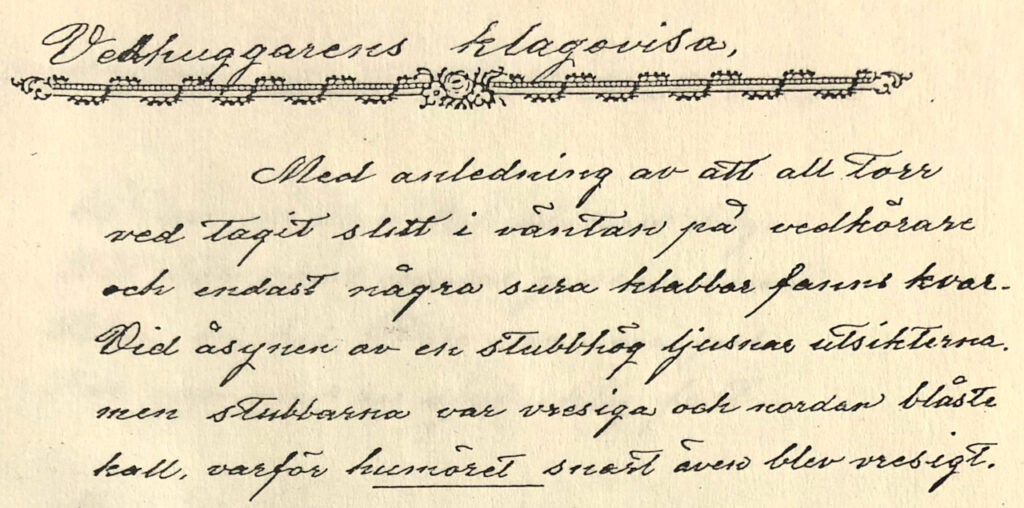 Vedhuggarens klagovisa,
Med anledning av att all torr
ved tagit slut i väntan på vedkörare
och endast några sura klabbar fanns kvar.
Vid åsynen av en stubbhög ljusnar utsikterna.
men stubbarna var vresiga och nordan blåste
kall, varför humöret snart även blev vresigt.